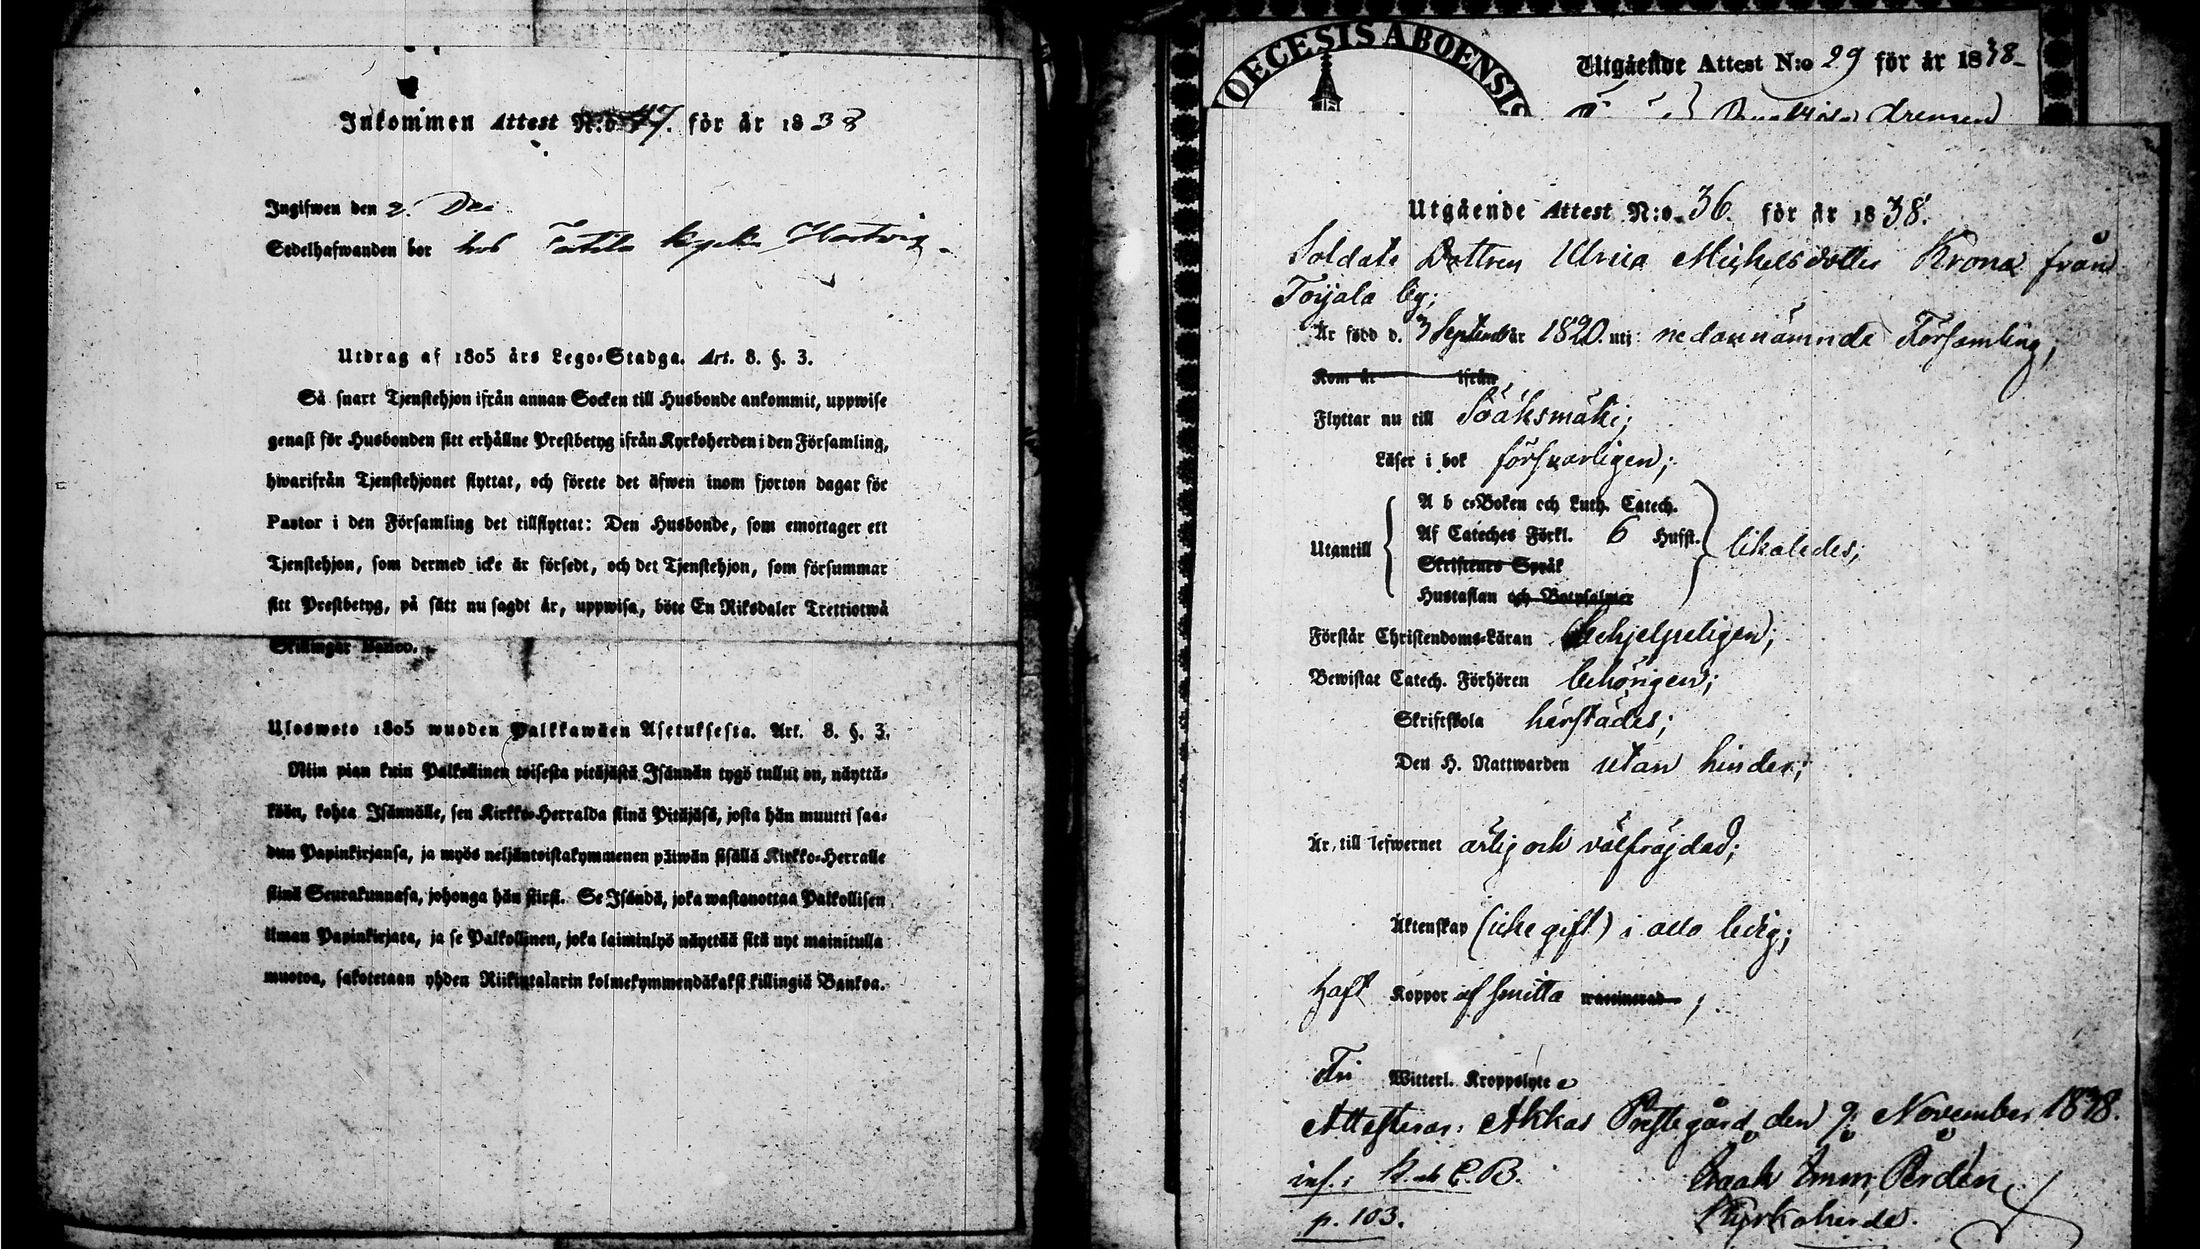 Inkommen Attest N:o 47. för år 1838
Ingifwen den 2. Dec
Sedelhafwanden bor hos
Utdrag af 1805 års Lego-Stadga. Art. 8. §. 3.
Så snart Tjenstehjon ifrån annan Socken till Husbonde ankommit, uppwise
genast för Husbonden sitt erhållne Prestbetyg ifrån Kyrkoherden i den Församling,
hwarifrån Tjenstehjonet flyttat, och förete det äfwen inom fjorton dagar för
Pastor i den Församling det tillflyttat: Den Husbonde, som emottager ett
Tjenstehjon, som dermed icke är försedt, och det Tjenstehjon, som försummar
sitt Prestbetyg, på sätt nu sagdt är, uppwisa, böte En Riksdaler Trettiotwå
Skillingar Banco.
Ulosweto 1805 wuoden Palkkawäen Asetuksesta. Art. 8. §. 3.
Niin pian kuin Palkollinen toisesta pitäjästä Isännän tygö tullut on, näyttä-
köön, kohta Isännälle, sen Kirkko-Herralda siinä Pitäjäsä, josta hän muutti saa-
dun Papinkirjansa, ja myös neljäntoistakymmenen päiwän sisällä Kirkko-Herralle
siinä Seurakunnasa, johonga hän siirsi. Se Isändä, joka wastanottaa Palkollisen
ilman Papinkirjata, ja se Palkollinen, joka laiminlyö näyttää sitä nyt mainitulla
muotoa, sakotetaan yhden Riikintalarin kolmekymmendäkaksi killingiä Bankoa.
DIOECESIS ABOENSIS
Utgående Attest N:o 29 för år 1838
Utgående Attest N:o 36. för år 1838.
Soldats Dottren Ulrica Michelsdotter Krona från
Toijala by;
Är född d. 3 September 1820. uti nedannämnde Församling;
Kom år ifrån
Flyttar nu till Sääksmäki;
Läser i bok försvarligen;
A b c-Boken och Luth. Catech.
Utantill Af Cateches Förkl. 6 Hufst. likaledes;
Skriftenes Språk
Hustaflan och Botpsalmer
Förstår Christendoms-Läran behjelpeligen;
Bewistat Catech. Förhören behörigen;
Skriftskola härstädes;
Den H. Nattwarden utan hinder;
Är till lefwernet ärlig och välfräjdad;
Äktenskap (icke gift) i allo ledig;
Haft Koppor af smitta vaccinerad;
Fri Witterl. Kroppslyte
Attesterar: Akkas Prestegård den 9. November 1838.
inf. : K. ob C. B.
Isaak Imm. Perdén
p. 103.
Kyrkoherde.